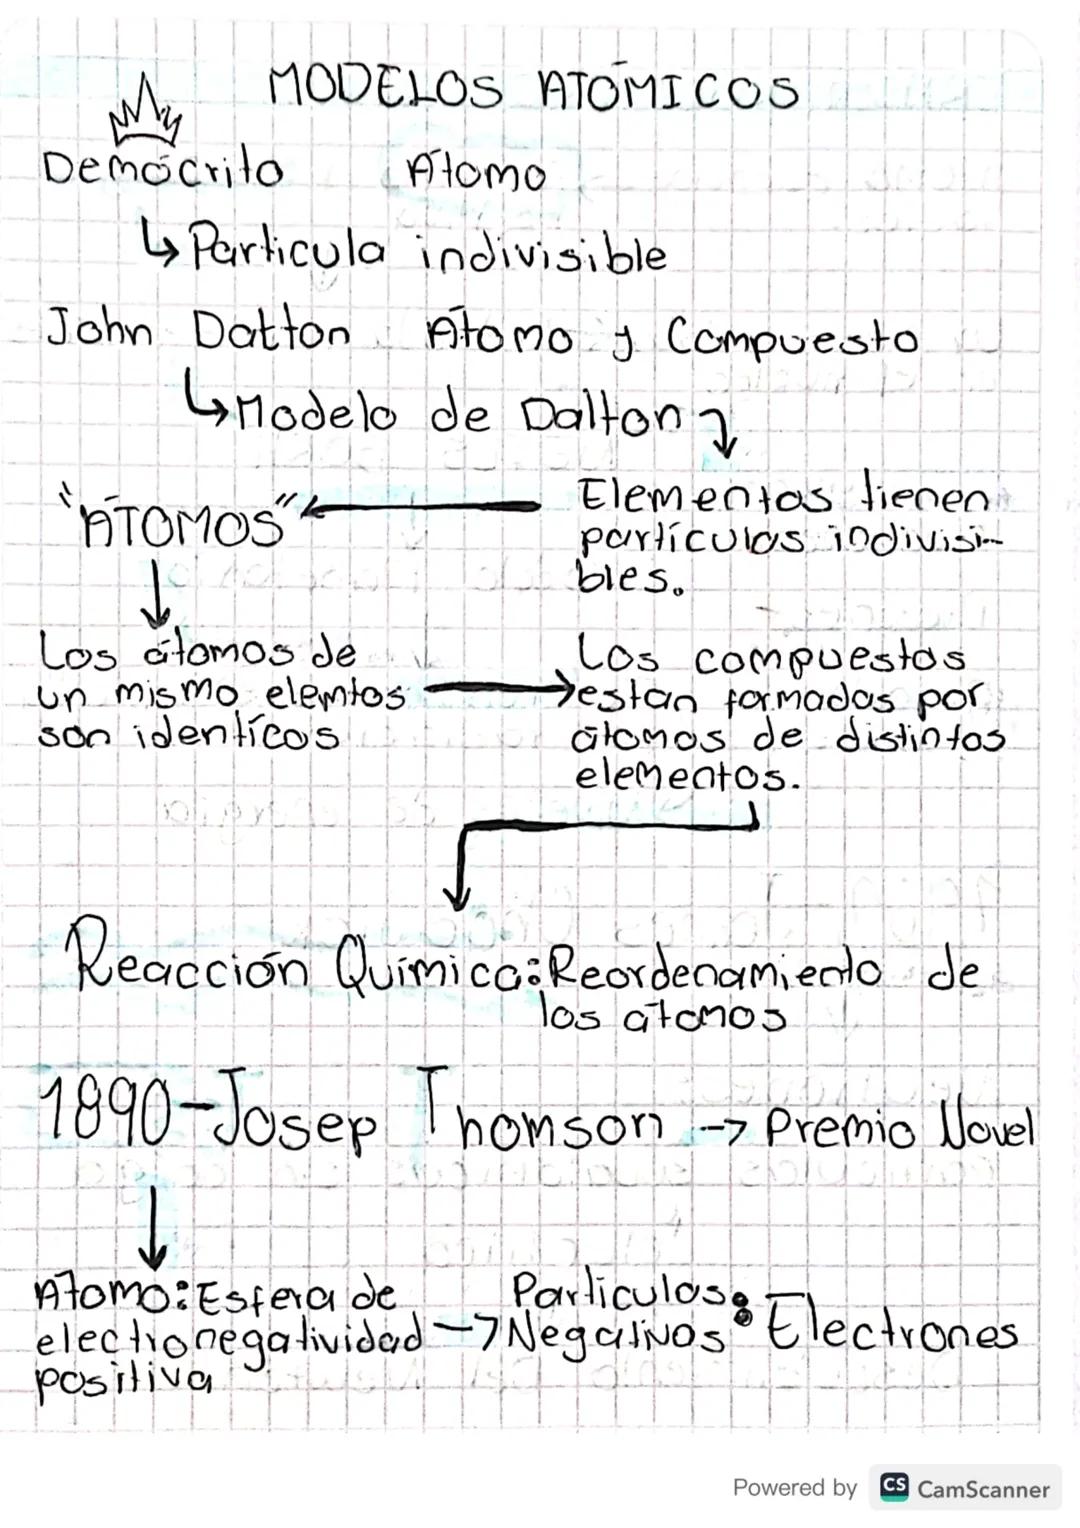 MODELOS ATÓMICOS
Demócrito Átomo
↳ Particula indivisible
John Datton Átomo y Compuesto
↳ Modelo de Dalton
"ÁTOMOS"
Elementos tienen
partículas indivisi-
bles.
Los átomos de
un mismo elemtos
son identícos
Los compuestos
estan formados por
átomos de distintos
elementos.
Reacción Química: Reordenamiento de
los átomos
1890-Josep Thomson → Premio Novel
Átomo: Esfera de
electronegatividad
positiva
→ Particulas
Negativos: Electrones
Powered by CS CamScanner